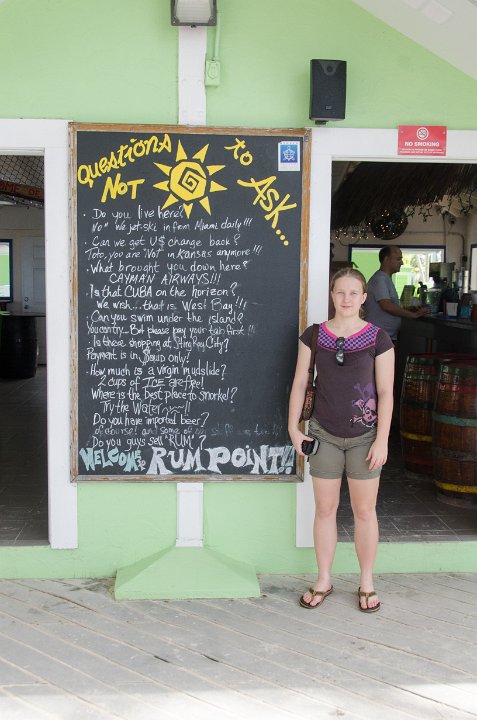 Questions to
Not Ask...
. Do you live here?
No" We jet-ski in from Miami daily!!!
. Can we get U$ change back?
Toto, you are "Not" in Kansas anymore!!!
. What brought you down here?
CAYMAN AIRWAYS!!!
. Is that CUBA on the horizon?
We wish... that is West Bay!!!
. Can you swim under the island?
You can try... But please pay your tab first!!
. Is there shopping at Sting Ray City?
Payment is in only!
. How much is a virgin mudslide?
2 cups of ICE are free!
Where is the best place to snorkel?
Try the Water!!
Do you have imported beer?
of course! and some of our staff are too!!!
Do you guys sell "RUM"?
WELCOME to RUM POINT!!
NO SMOKING